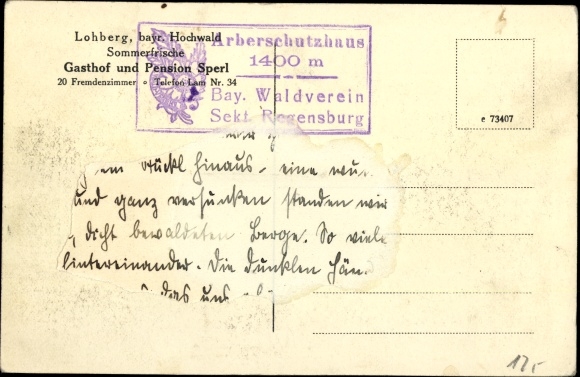 Lohberg, bayr. Hochwald
Sommerfrische
Gasthof und Pension Sperl
20 Fremdenzimmer o Telefon Lam Nr. 34
Arberschutzhaus
1400 m
Bay. Waldverein
Sekt. Regensburg
e 73407
hinaus - eine
und ganz versunken standen wir
dicht bewaldeten Berge. So viele
hintereinander. Die dunklen
das uns